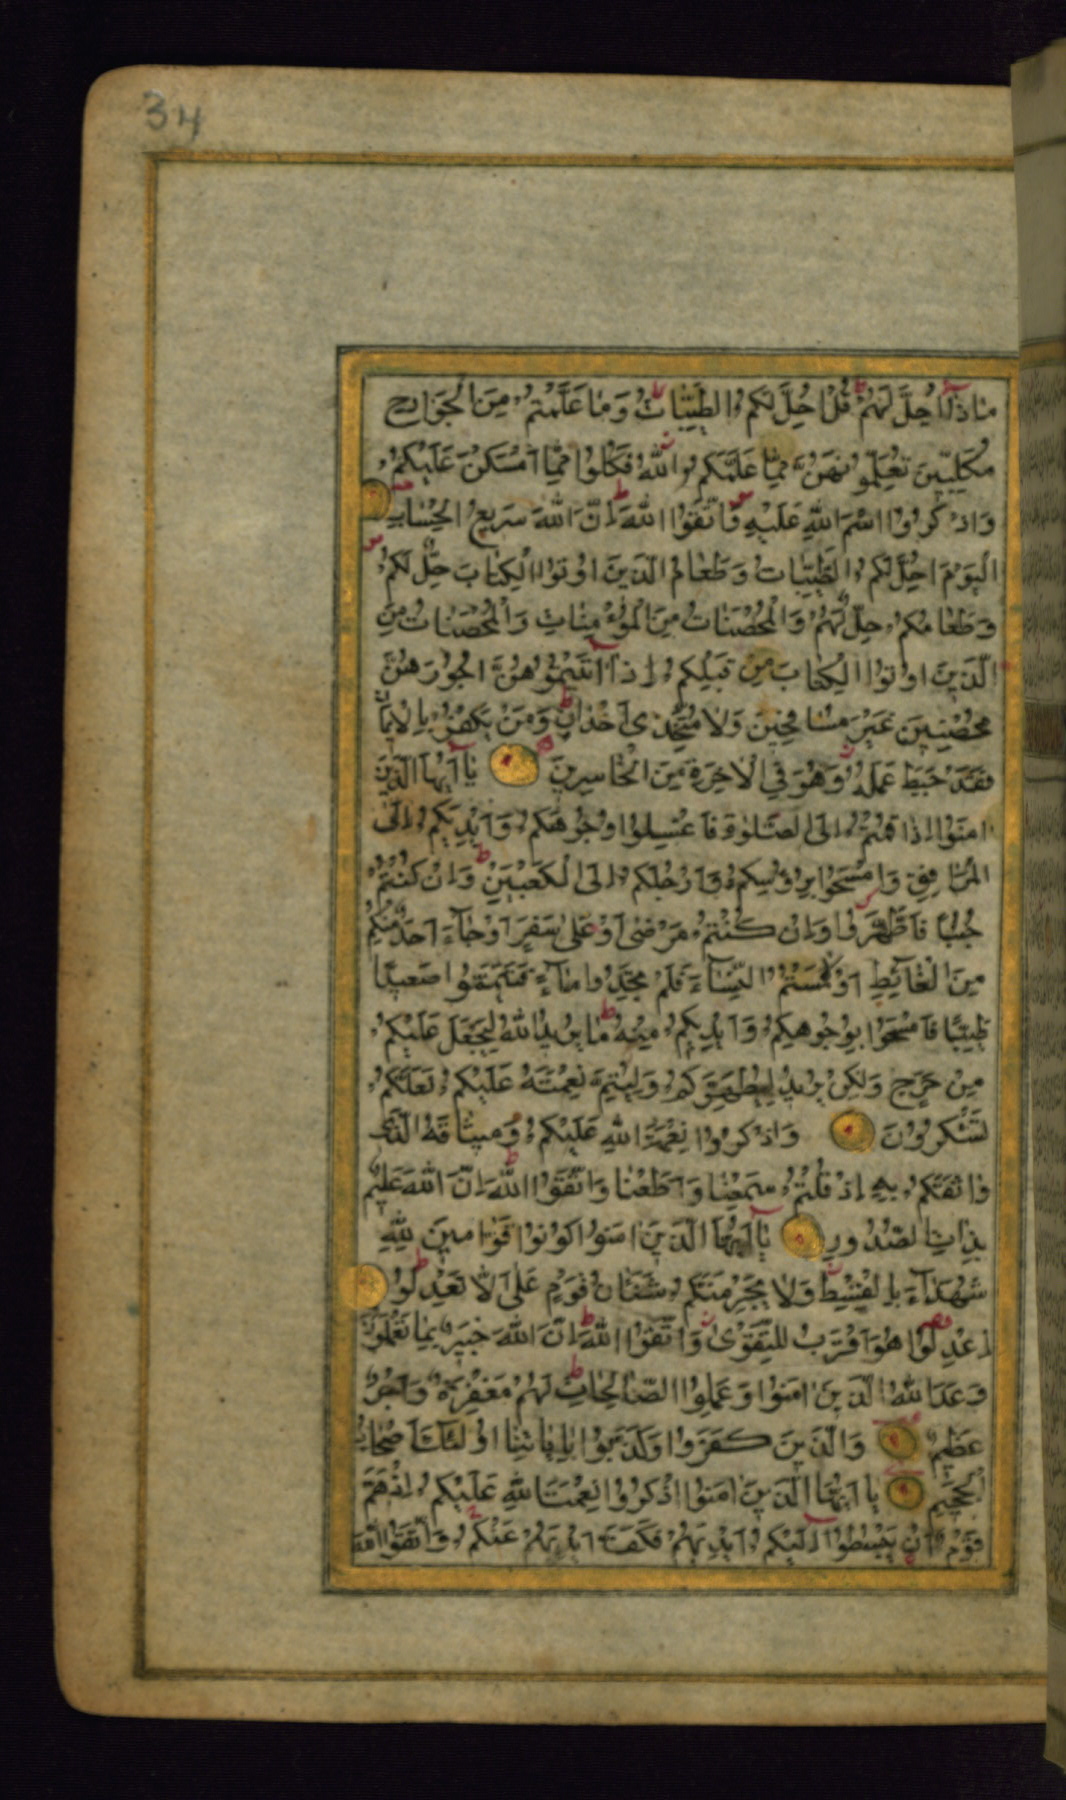 34
مَاذَا اُحِلَّ لَهُمْ قُلْ اُحِلَّ لَكُمُ الطَّيِّبَاتُ وَمَا عَلَّمْتُمْ مِنَ الْجَوَارِحِ
مُكَلِّبِينَ تُعَلِّمُونَهُنَّ مِمَّا عَلَّمَكُمُ اللّٰهُ فَكُلُوا مِمَّا اَمْسَكْنَ عَلَيْكُمْ
وَاذْكُرُوا اسْمَ اللّٰهِ عَلَيْهِ وَاتَّقُوا اللّٰهَ اِنَّ اللّٰهَ سَرِيعُ الْحِسَابِ
اَلْيَوْمَ اُحِلَّ لَكُمُ الطَّيِّبَاتُ وَطَعَامُ الَّذِينَ اُوتُوا الْكِتَابَ حِلٌّ لَكُمْ
وَطَعَامُكُمْ حِلٌّ لَهُمْ وَالْمُحْصَنَاتُ مِنَ الْمُؤْمِنَاتِ وَالْمُحْصَنَاتُ مِنَ
الَّذِينَ اُوتُوا الْكِتَابَ مِنْ قَبْلِكُمْ اِذَا اٰتَيْتُمُوهُنَّ اُجُورَهُنَّ
مُحْصِنِينَ غَيْرَ مُسَافِحِينَ وَلَا مُتَّخِذِى اَخْدَانٍ وَمَنْ يَكْفُرْ بِالْاِيمَانِ
فَقَدْ حَبِطَ عَمَلُهُ وَهُوَ فِي الْاٰخِرَةِ مِنَ الْخَاسِرِينَ يَا اَيُّهَا الَّذِينَ
اٰمَنُوا اِذَا قُمْتُمْ اِلَى الصَّلٰوةِ فَاغْسِلُوا وُجُوهَكُمْ وَاَيْدِيَكُمْ اِلَى
الْمَرَافِقِ وَامْسَحُوا بِرُؤُسِكُمْ وَاَرْجُلَكُمْ اِلَى الْكَعْبَيْنِ وَاِنْ كُنْتُمْ
جُنُبًا فَاطَّهَّرُوا وَاِنْ كُنْتُمْ مَرْضٰى اَوْ عَلٰى سَفَرٍ اَوْ جَاءَ اَحَدٌ مِنْكُمْ
مِنَ الْغَائِطِ اَوْ لٰمَسْتُمُ النِّسَاءَ فَلَمْ تَجِدُوا مَاءً فَتَيَمَّمُوا صَعِيدًا
طَيِّبًا فَامْسَحُوا بِوُجُوهِكُمْ وَاَيْدِيكُمْ مِنْهُ مَا يُرِيدُ اللّٰهُ لِيَجْعَلَ عَلَيْكُمْ
مِنْ حَرَجٍ وَلٰكِنْ يُرِيدُ لِيُطَهِّرَكُمْ وَلِيُتِمَّ نِعْمَتَهُ عَلَيْكُمْ لَعَلَّكُمْ
تَشْكُرُونَ وَاذْكُرُوا نِعْمَةَ اللّٰهِ عَلَيْكُمْ وَمِيثَاقَهُ الَّذِى
وَاثَقَكُمْ بِهِ اِذْ قُلْتُمْ سَمِعْنَا وَاَطَعْنَا وَاتَّقُوا اللّٰهَ اِنَّ اللّٰهَ عَلِيمٌ
بِذَاتِ الصُّدُورِ يَا اَيُّهَا الَّذِينَ اٰمَنُوا كُونُوا قَوَّامِينَ لِلّٰهِ
شُهَدَاءَ بِالْقِسْطِ وَلَا يَجْرِمَنَّكُمْ شَنَاٰنُ قَوْمٍ عَلٰى اَلَّا تَعْدِلُوا
اِعْدِلُوا هُوَ اَقْرَبُ لِلتَّقْوٰى وَاتَّقُوا اللّٰهَ اِنَّ اللّٰهَ خَبِيرٌ بِمَا تَعْمَلُونَ
وَعَدَ اللّٰهُ الَّذِينَ اٰمَنُوا وَعَمِلُوا الصَّالِحَاتِ لَهُمْ مَغْفِرَةٌ وَاَجْرٌ
عَظِيمٌ وَالَّذِينَ كَفَرُوا وَكَذَّبُوا بِاٰيَاتِنَا اُولٰئِكَ اَصْحَابُ
الْجَحِيمِ يَا اَيُّهَا الَّذِينَ اٰمَنُوا اذْكُرُوا نِعْمَتَ اللّٰهِ عَلَيْكُمْ اِذْ هَمَّ
قَوْمٌ اَنْ يَبْسُطُوا اِلَيْكُمْ اَيْدِيَهُمْ فَكَفَّ اَيْدِيَهُمْ عَنْكُمْ وَاتَّقُوا اللّٰهَ